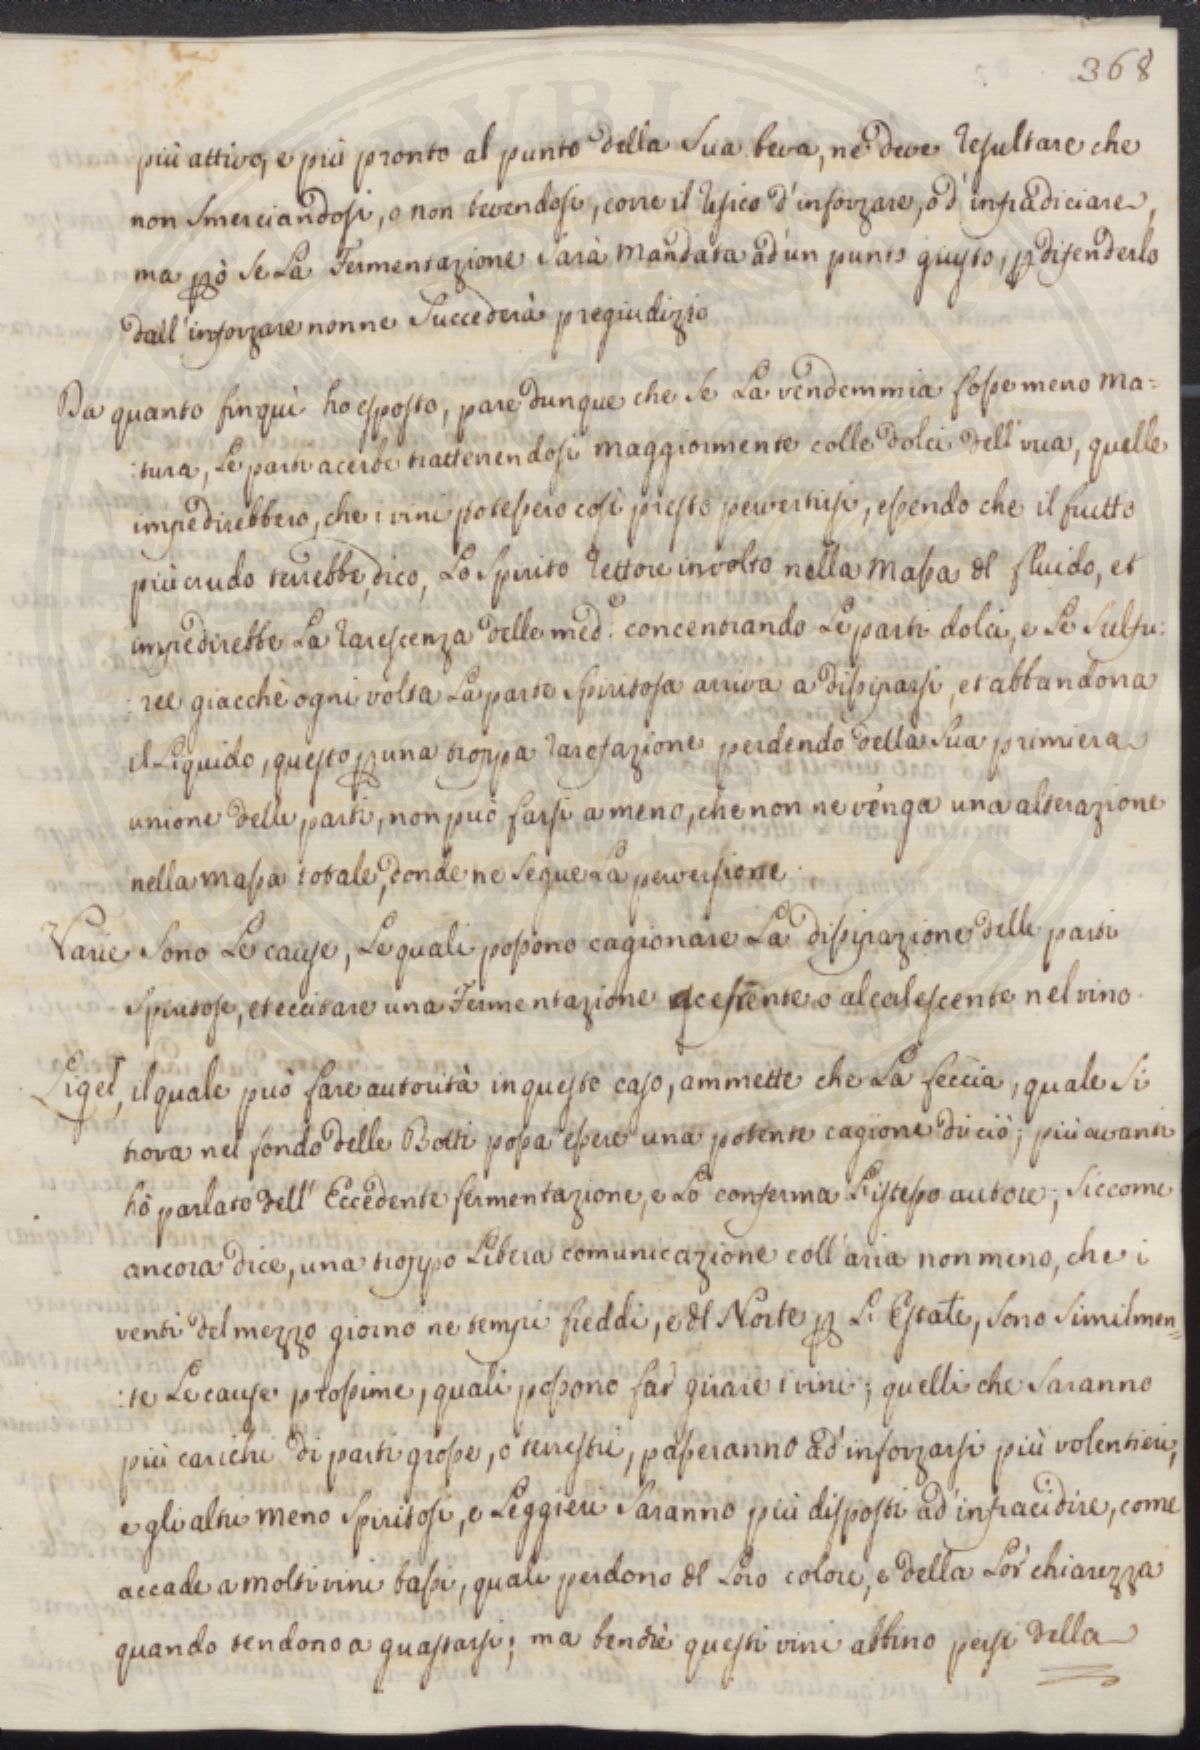 368
più attivo, e più pronto al punto della Sua beva, ne deve resultare che
non Smerciandosi, o non bevendosi, corre il risico d'inforzare, o d'infradiciare,
ma pp̃ò Se La Fermentazione Sarà mandata ad un punto giusto, p difenderlo
dall'inforzare non ne Succederà pregiudizio
Da quanto finquì ho esposto, pare dunque che Se La vendemmia fosse meno ma=
:tura, Le parti acerbe trattenendosi maggiormente colle dolci dell'uva, quelle
impedirebbero, che i vini potessero così presto pervertirsi, essendo che il frutto
più crudo terrebbe, dico, Lo Spirito rettore involto nella massa dl fluido, et
impedirebbe La rarescenza delle med.e concentrando Le parti dolci, e Le Sulfu:
:ree giacchè ogni volta La parte Spiritosa arriva a dissiparsi, et abbandona
il Liquido, questo p una troppa rarefazione perdendo della Sua primiera
unione delle parti, non può farsi a meno, che non ne venga una alterazione
nella massa totale, donde ne Segue La perversione.
Varie Sono Le cause, Le quali possono cagionare La dissipazione delle parti
Spiritose, et eccitare una Fermentazione acescente o alcalescente nel vino.
Liget, il quale può fare autorità in questo caso, ammette che La feccia, quale Si
trova nel fondo delle Botti possa essere una potente cagione di ciò; più avanti
hò parlato dell'Eccedente fermentazione, e Lo conferma L'istesso autore; Siccome
ancora dice, una troppo Libera comunicazione coll'aria non meno, che i
venti del mezzo giorno ne tempi freddi, e dl Norte p L'Estate, Sono Similmen=
:te Le cause prossime, quali possono far girare i vini; quelli che Saranno
più carichi di parti grosse, o terrestri, passeranno ad inforzarsi più volentieri,
e gli altri meno Spiritosi, e Leggieri Saranno più disposti ad infracidire, come
accade a molti vini bassi, quali perdono dl Loro colore, e della Lor chiarezza
quando tendono a guastarsi; ma benchè questi vini abbino persi della